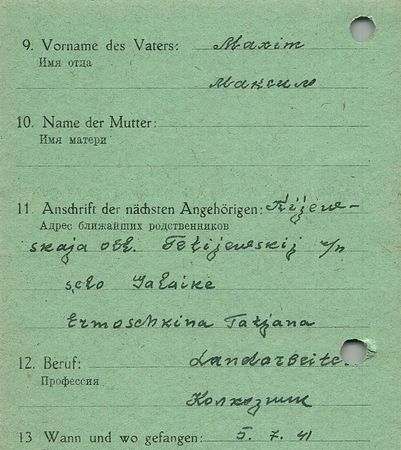 9. Vorname des Vaters: Maxim
Имя отца
Максим
10. Name der Mutter:
Имя матери
11. Anschrift der nächsten Angehörigen: Kijew-
Адрес ближайших родственников
skaja obl. Tetijewskij r/n
selo Galaike
Ermoschkina Tatjana
12. Beruf: Landarbeite
Профессия
Колхозник
13 Wann und wo gefangen: 5. 7. 41